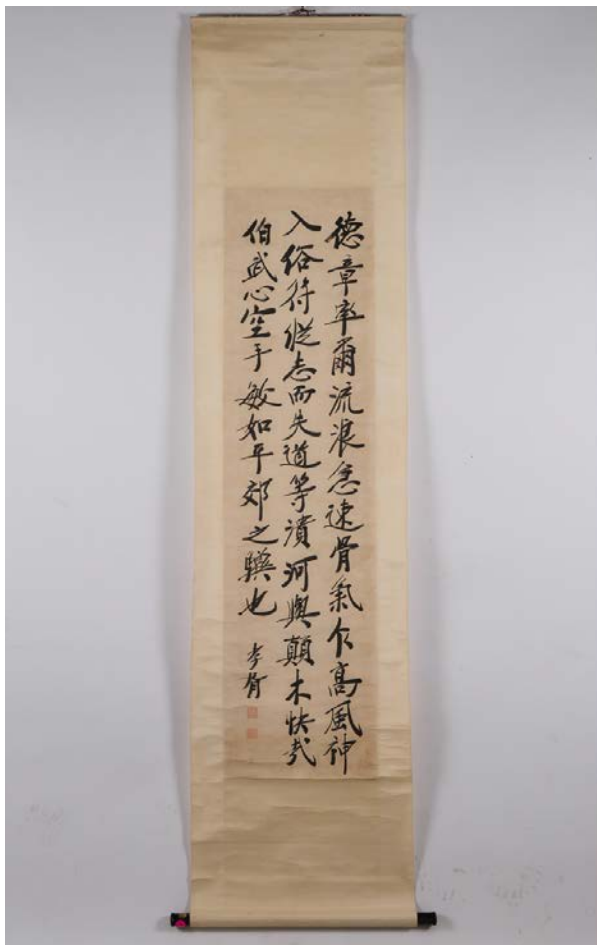 德章率爾流浪急速骨氣乍高風神
入俗縱志而失道等潰河與顛木快哉
伯武心空手敏如平郊之驥也
孝胥